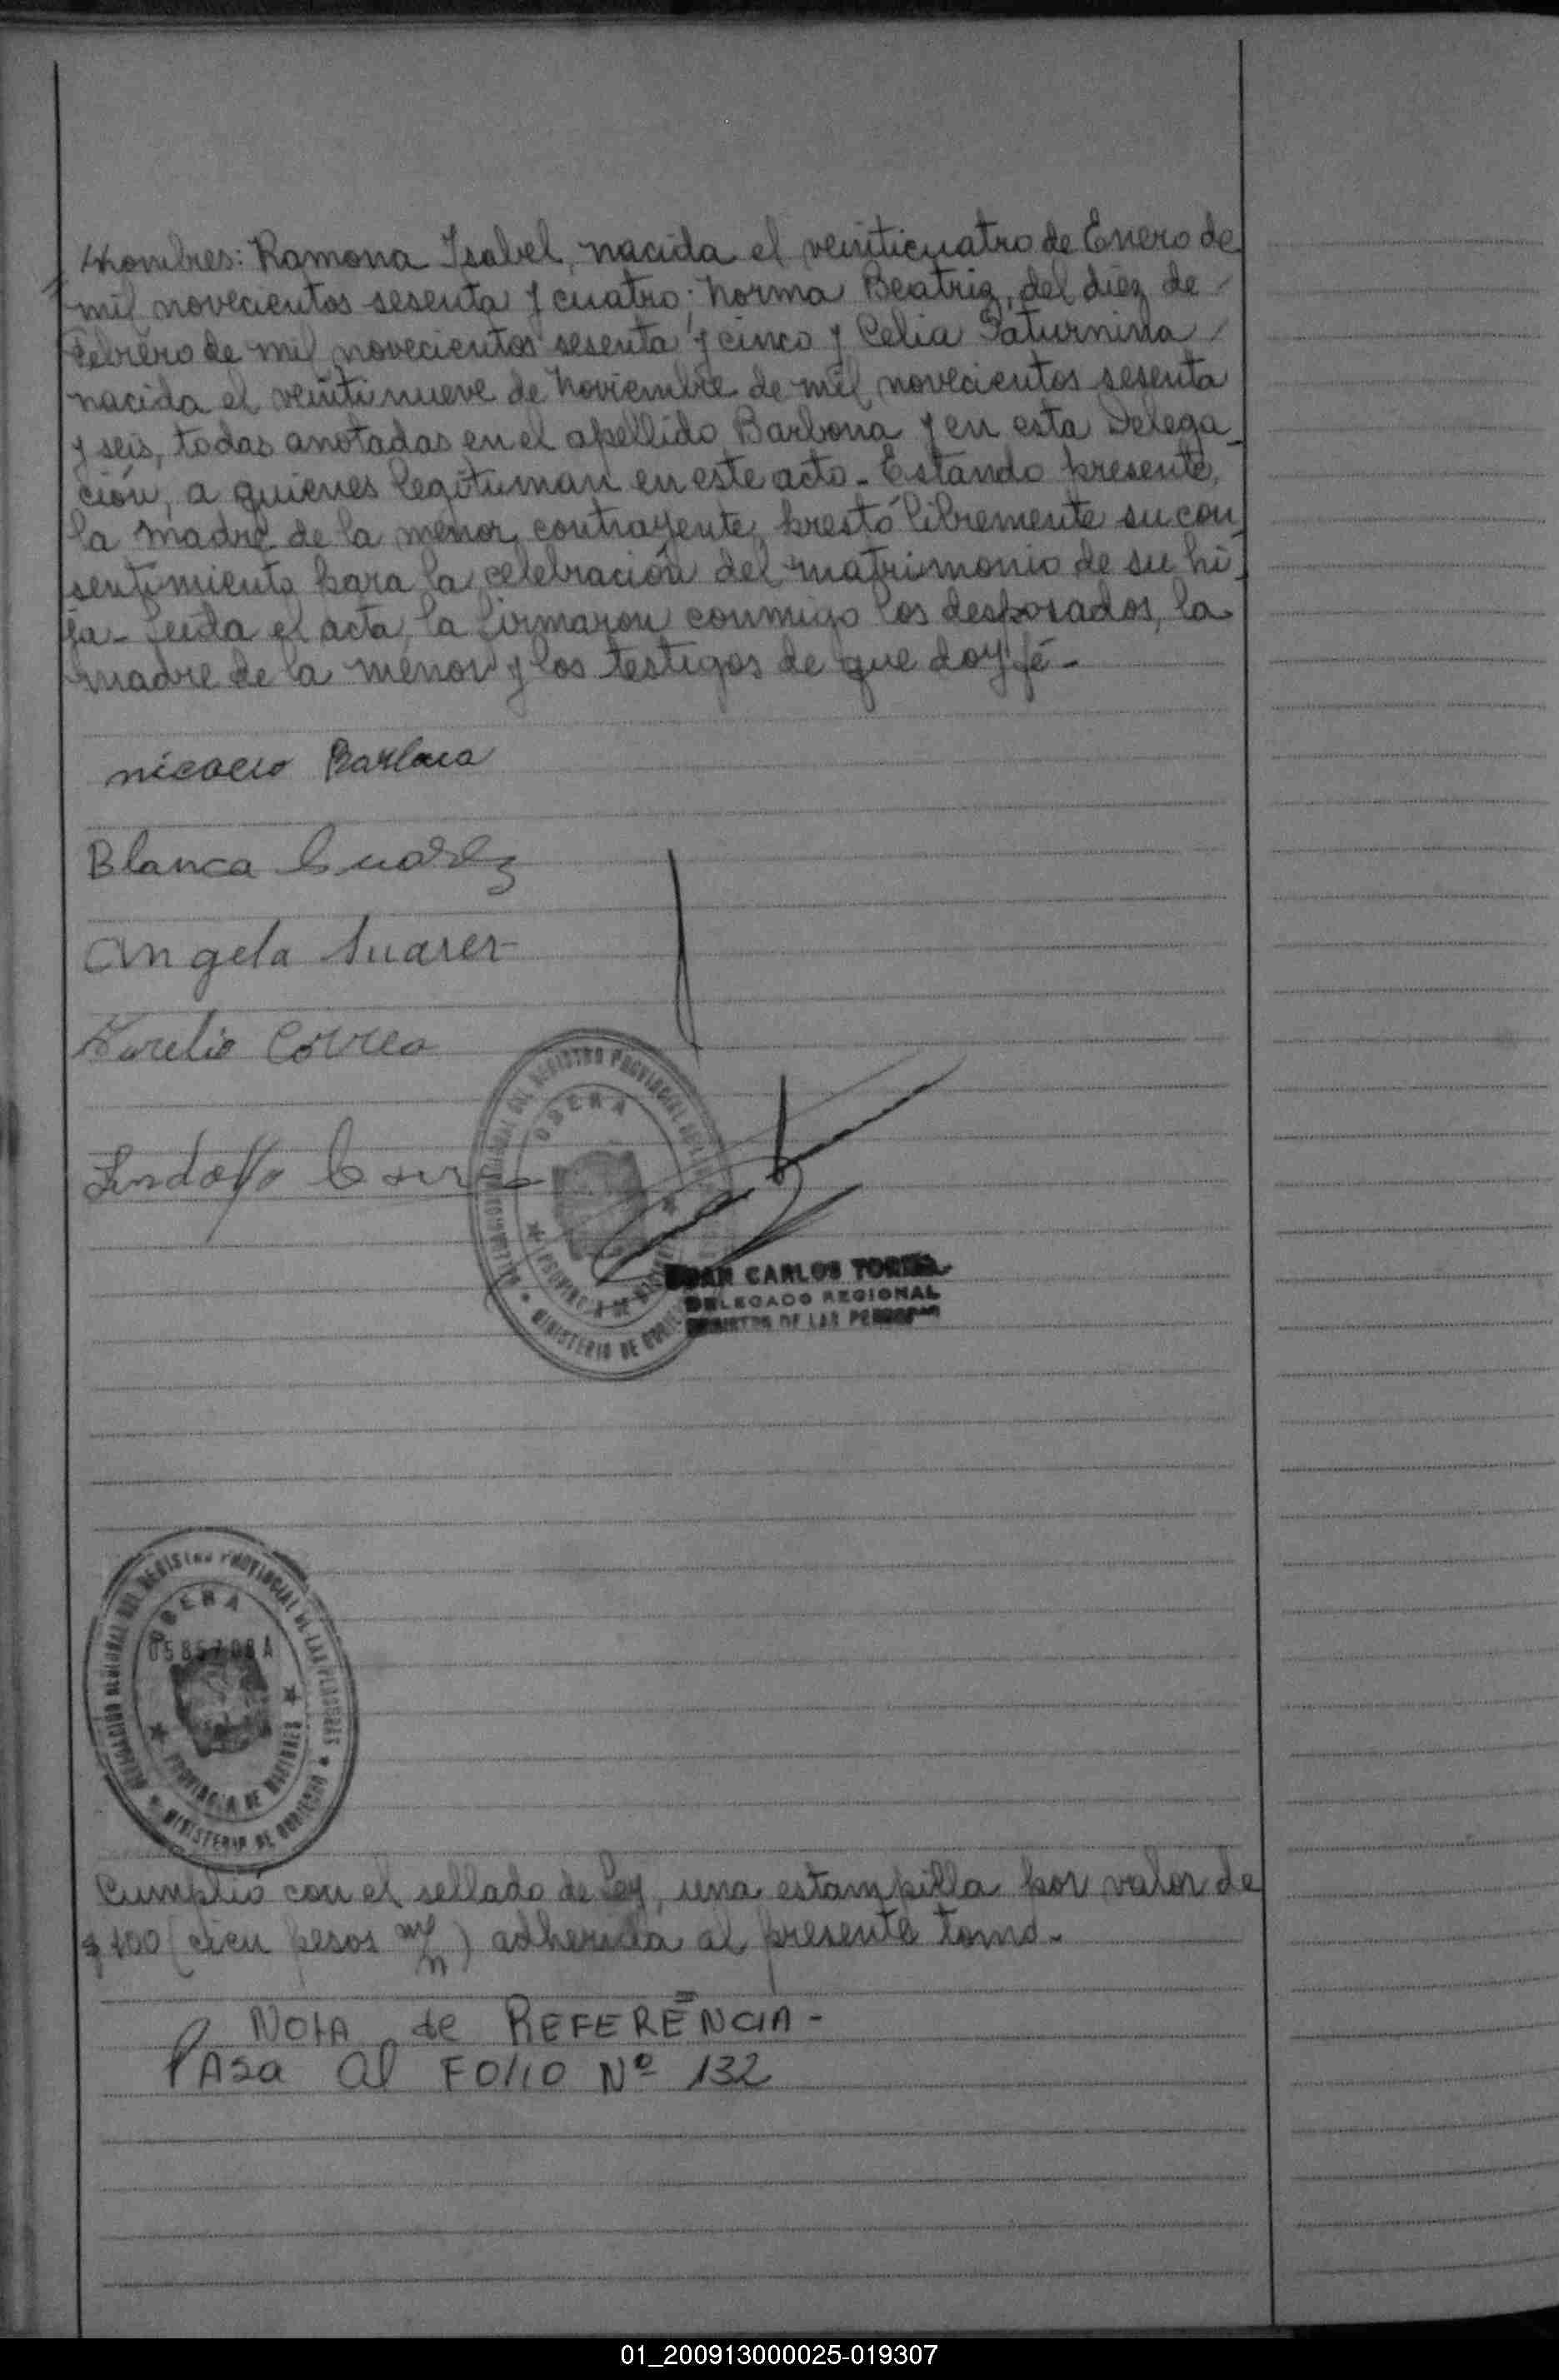 nombres: Ramona Isabel, nacida el veinticuatro de Enero de
mil novecientos sesenta y cuatro; Norma Beatriz, del diez de
Febrero de mil novecientos sesenta y cinco y Celia Saturnina
nacida el veintinueve de Noviembre de mil novecientos sesenta
y seis, todas anotadas en el apellido Barbona y en esta Delega_
ción, a quienes legitiman en este acto. Estando presente,
la madre de la menor contrayente, prestó libremente su con_
sentimiento para la celebración del matrimonio de su hi_
ja- Leída el acta, la firmaron conmigo los desposados, la
madre de la menor y los testigos de que doy fé-
Blanca Suarez
Angela Suarez
Aurelio Correa
REGISTRO PROVINCIAL
OBERA
PROVINCIA DE
MINISTERIO DE
CARLOS
DELEGADO REGIONAL
DE LAS
DELEGACION REGIONAL DEL REGISTRO PROVINCIAL DE LAS PERSONAS
OBERA
PROVINCIA DE MISIONES
MINISTERIO DE GOBIERNO
Cumplió con el sellado de Ley, una estampilla por valor de
$ 100 (cien pesos m/n) adherida al presente tomo.
NOTA de REFERENCIA-
PASA al FOLIO Nº 132
01_200913000025-019307